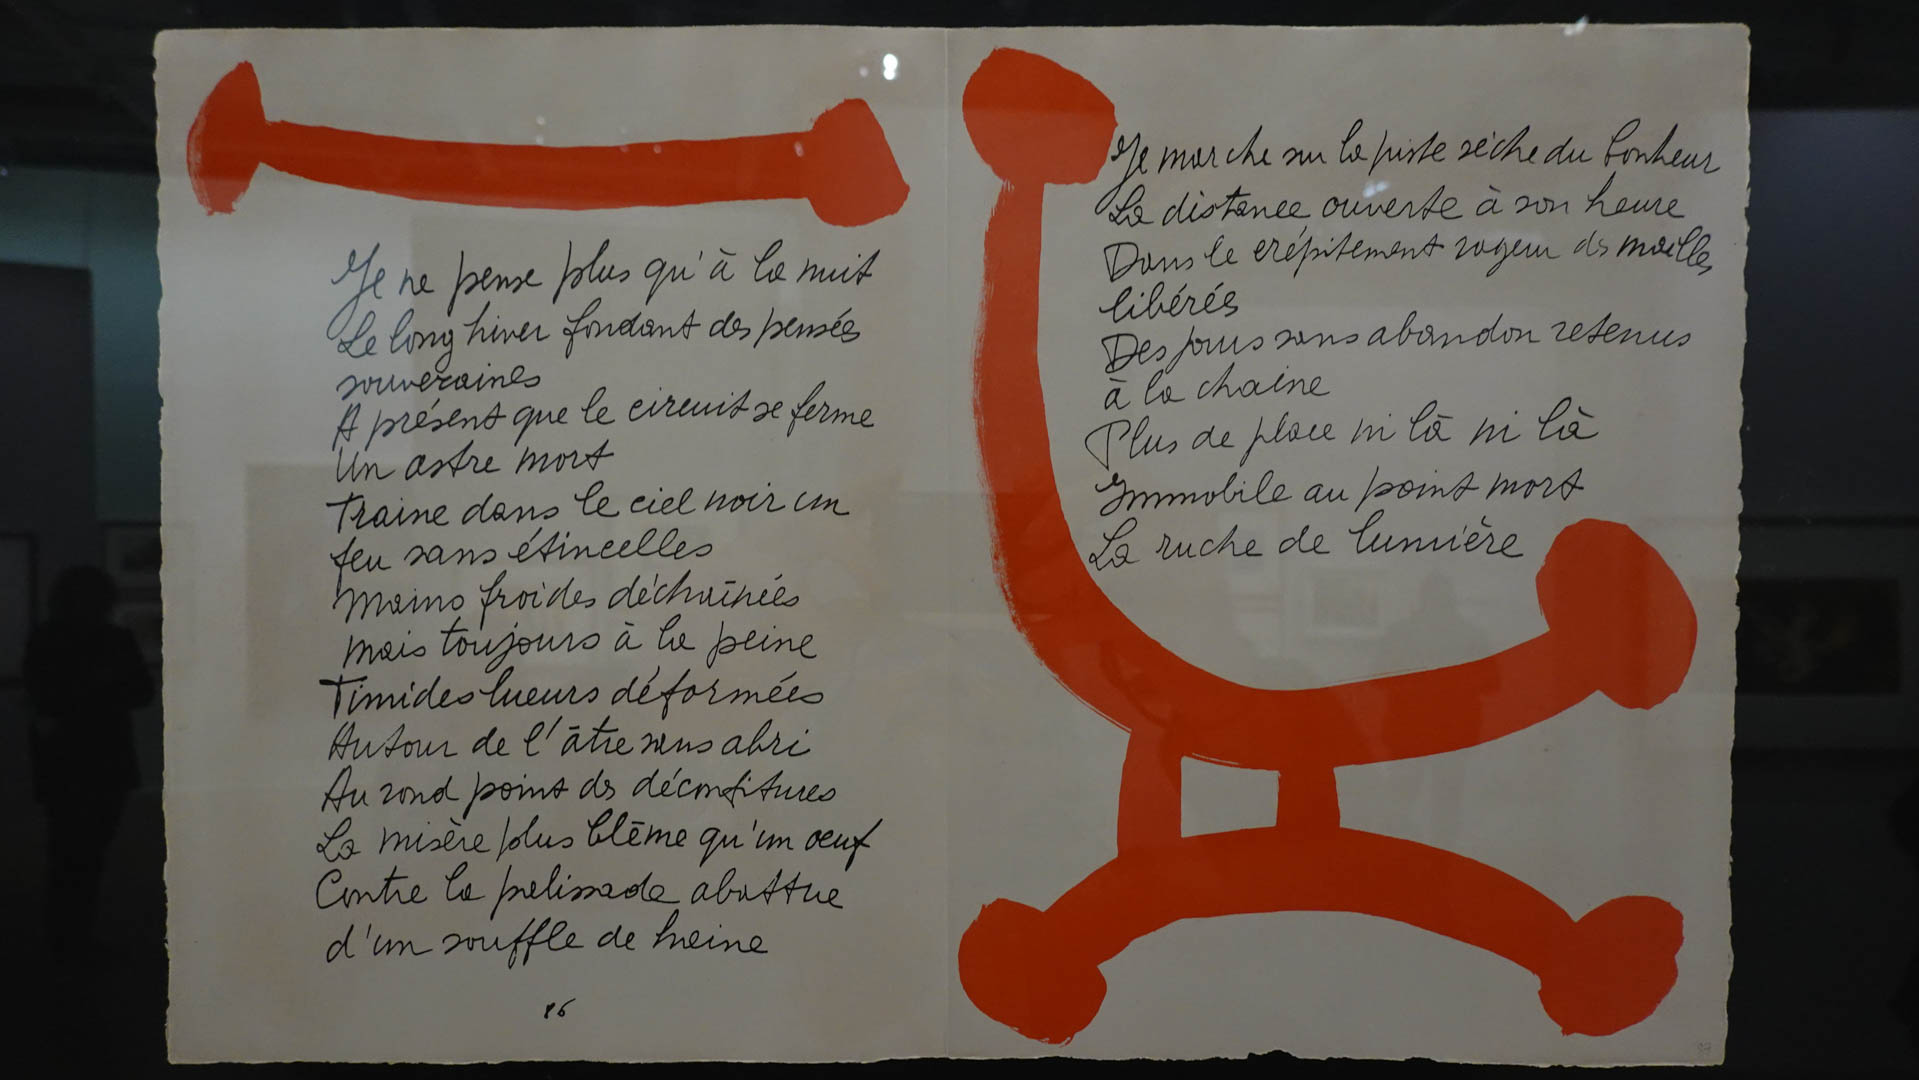 Je ne pense plus qu'à la nuit
Le long hiver fondant des pensées
souveraines
A présent que le circuit se ferme
Un astre mort
Traine dans le ciel noir un
feu sans étincelles
Mains froides déchaînées
mais toujours à la peine
Timides lueurs déformées
Autour de l'âtre sans abri
Au rond point des déconfitures
La misère plus blême qu'un oeuf
Contre la palissade abattue
d'un souffle de haine
86
Je marche sur la piste sèche du bonheur
La distance ouverte à son heure
Dans le crépitement rageur des mailles
libérés
Des jours sans abandon retenus
à la chaine
Plus de place ni là ni là
Immobile au point mort
La ruche de lumière
87